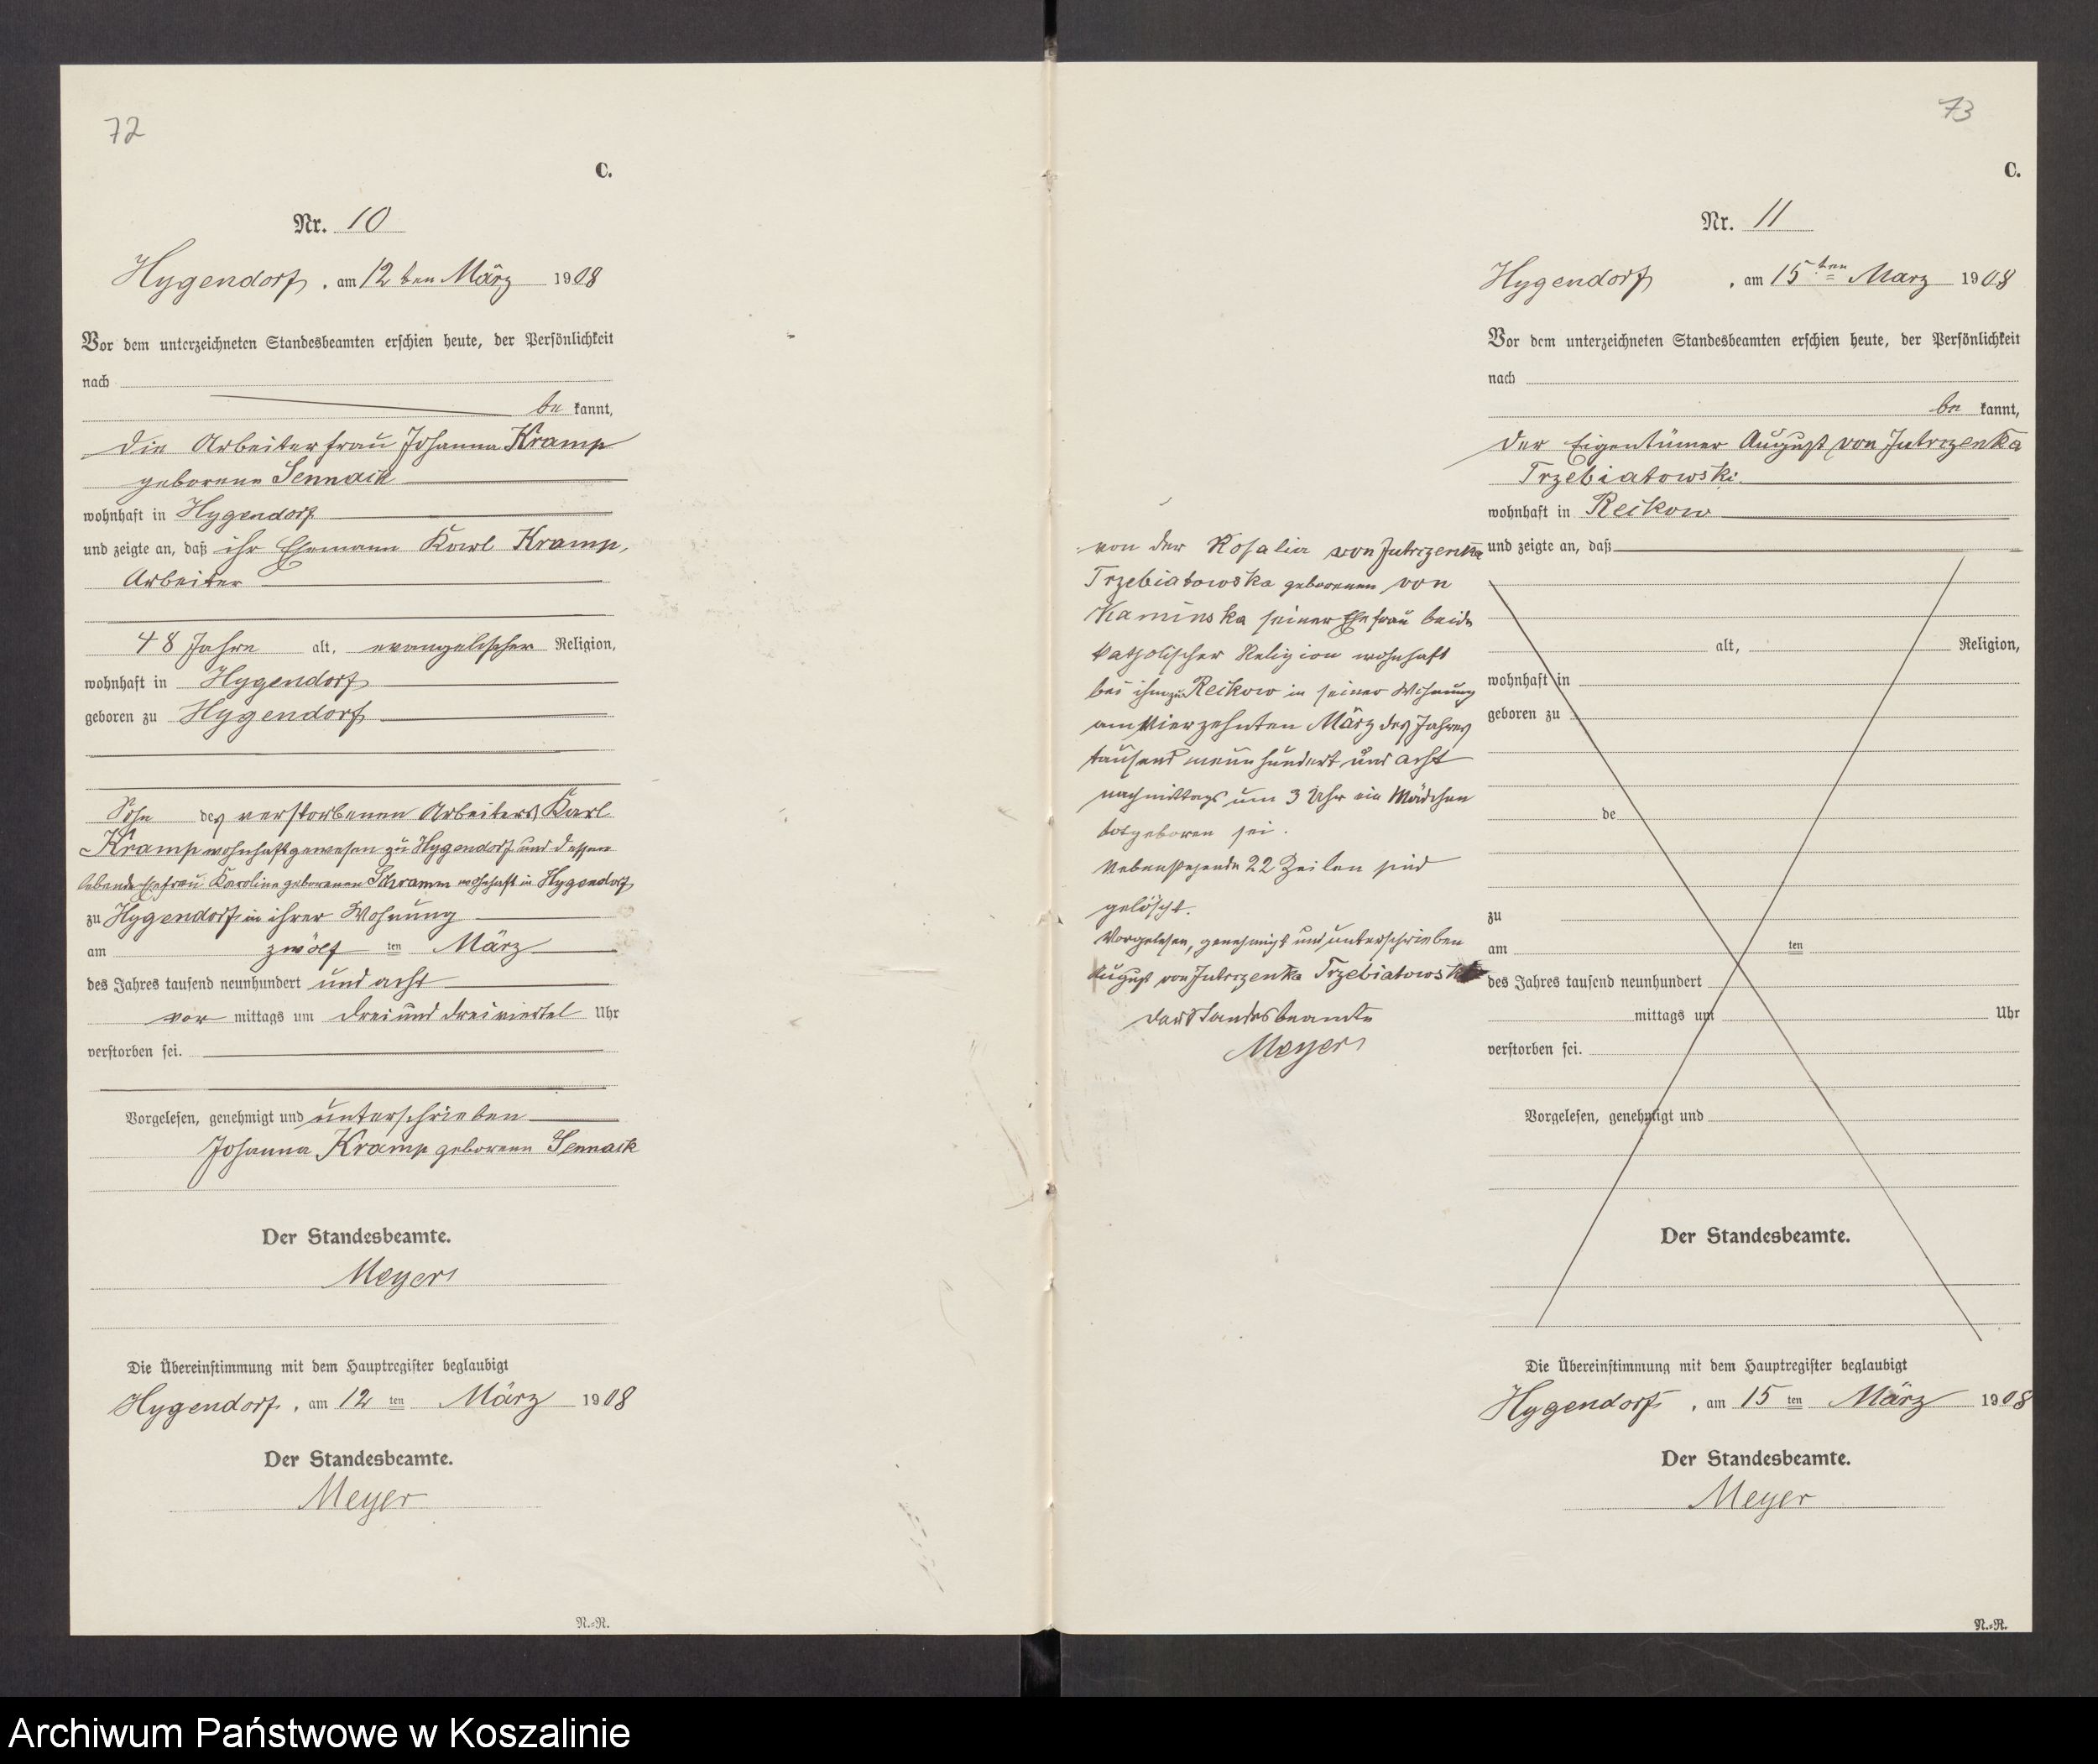 72
C.
Nr. 10
Hygendorf, am 12 ten März 1908
Vor dem unterzeichneten Standesbeamten erschien heute, der Persönlichkeit
nach
be kannt,
die Arbeiterfrau Johanna Kramp
geborene Sennack
wohnhaft in Hygendorf
und zeigte an, daß ihr Ehemann Karl Kramp,
Arbeiter
48 Jahre alt, evangelischer Religion,
wohnhaft in Hygendorf
geboren zu Hygendorf
Sohn des verstorbenen Arbeiters Karl
Kramp wohnhaft gewesen zu Hygendorf und dessen
lebende Ehefrau Karoline geborenen Schramm wohnhaft in Hygendorf
zu Hygendorf in ihrer Wohnung
am zwölf ten März
des Jahres tausend neunhundert und acht
vor mittags um drei und dreiviertel Uhr
verstorben sei.
Vorgelesen, genehmigt und unterschrieben
Johanna Kramp geborene Sennack
Der Standesbeamte.
Meyer
Die Übereinstimmung mit dem Hauptregister beglaubigt
Hygendorf, am 12 ten März 1908
Der Standesbeamte.
Meyer
N.-R.
73
C.
Nr. 11
Hygendorf, am 15 ten März 1908
Vor dem unterzeichneten Standesbeamten erschien heute, der Persönlichkeit
nach
be kannt,
der Eigentümer August von Jutrzenka
Trzebiatowski
wohnhaft in Reckow
und zeigte an, daß
von der Rosalia von Jutrzenka
Trzebiatowska geborenen von
Kaminska seiner Ehefrau beide
katholischer Religion wohnhaft
bei ihm zu Reckow in seiner Wohnung
am vierzehnten März des Jahres
tausend neunhundert und acht
nachmittags um 3 Uhr ein Mädchen
totgeboren sei.
Nebenstehende 22 Zeilen sind
gelöscht.
Vorgelesen, genehmigt und unterschrieben
August von Jutrzenka Trzebiatowski
Der Standesbeamte
Meyer
alt, Religion,
wohnhaft in
geboren zu
de
zu
am ten
des Jahres tausend neunhundert
mittags um Uhr
verstorben sei.
Vorgelesen, genehmigt und
Der Standesbeamte.
Die Übereinstimmung mit dem Hauptregister beglaubigt
Hygendorf, am 15 ten März 1908
Der Standesbeamte.
Meyer
N.-R.
Archiwum Państwowe w Koszalinie